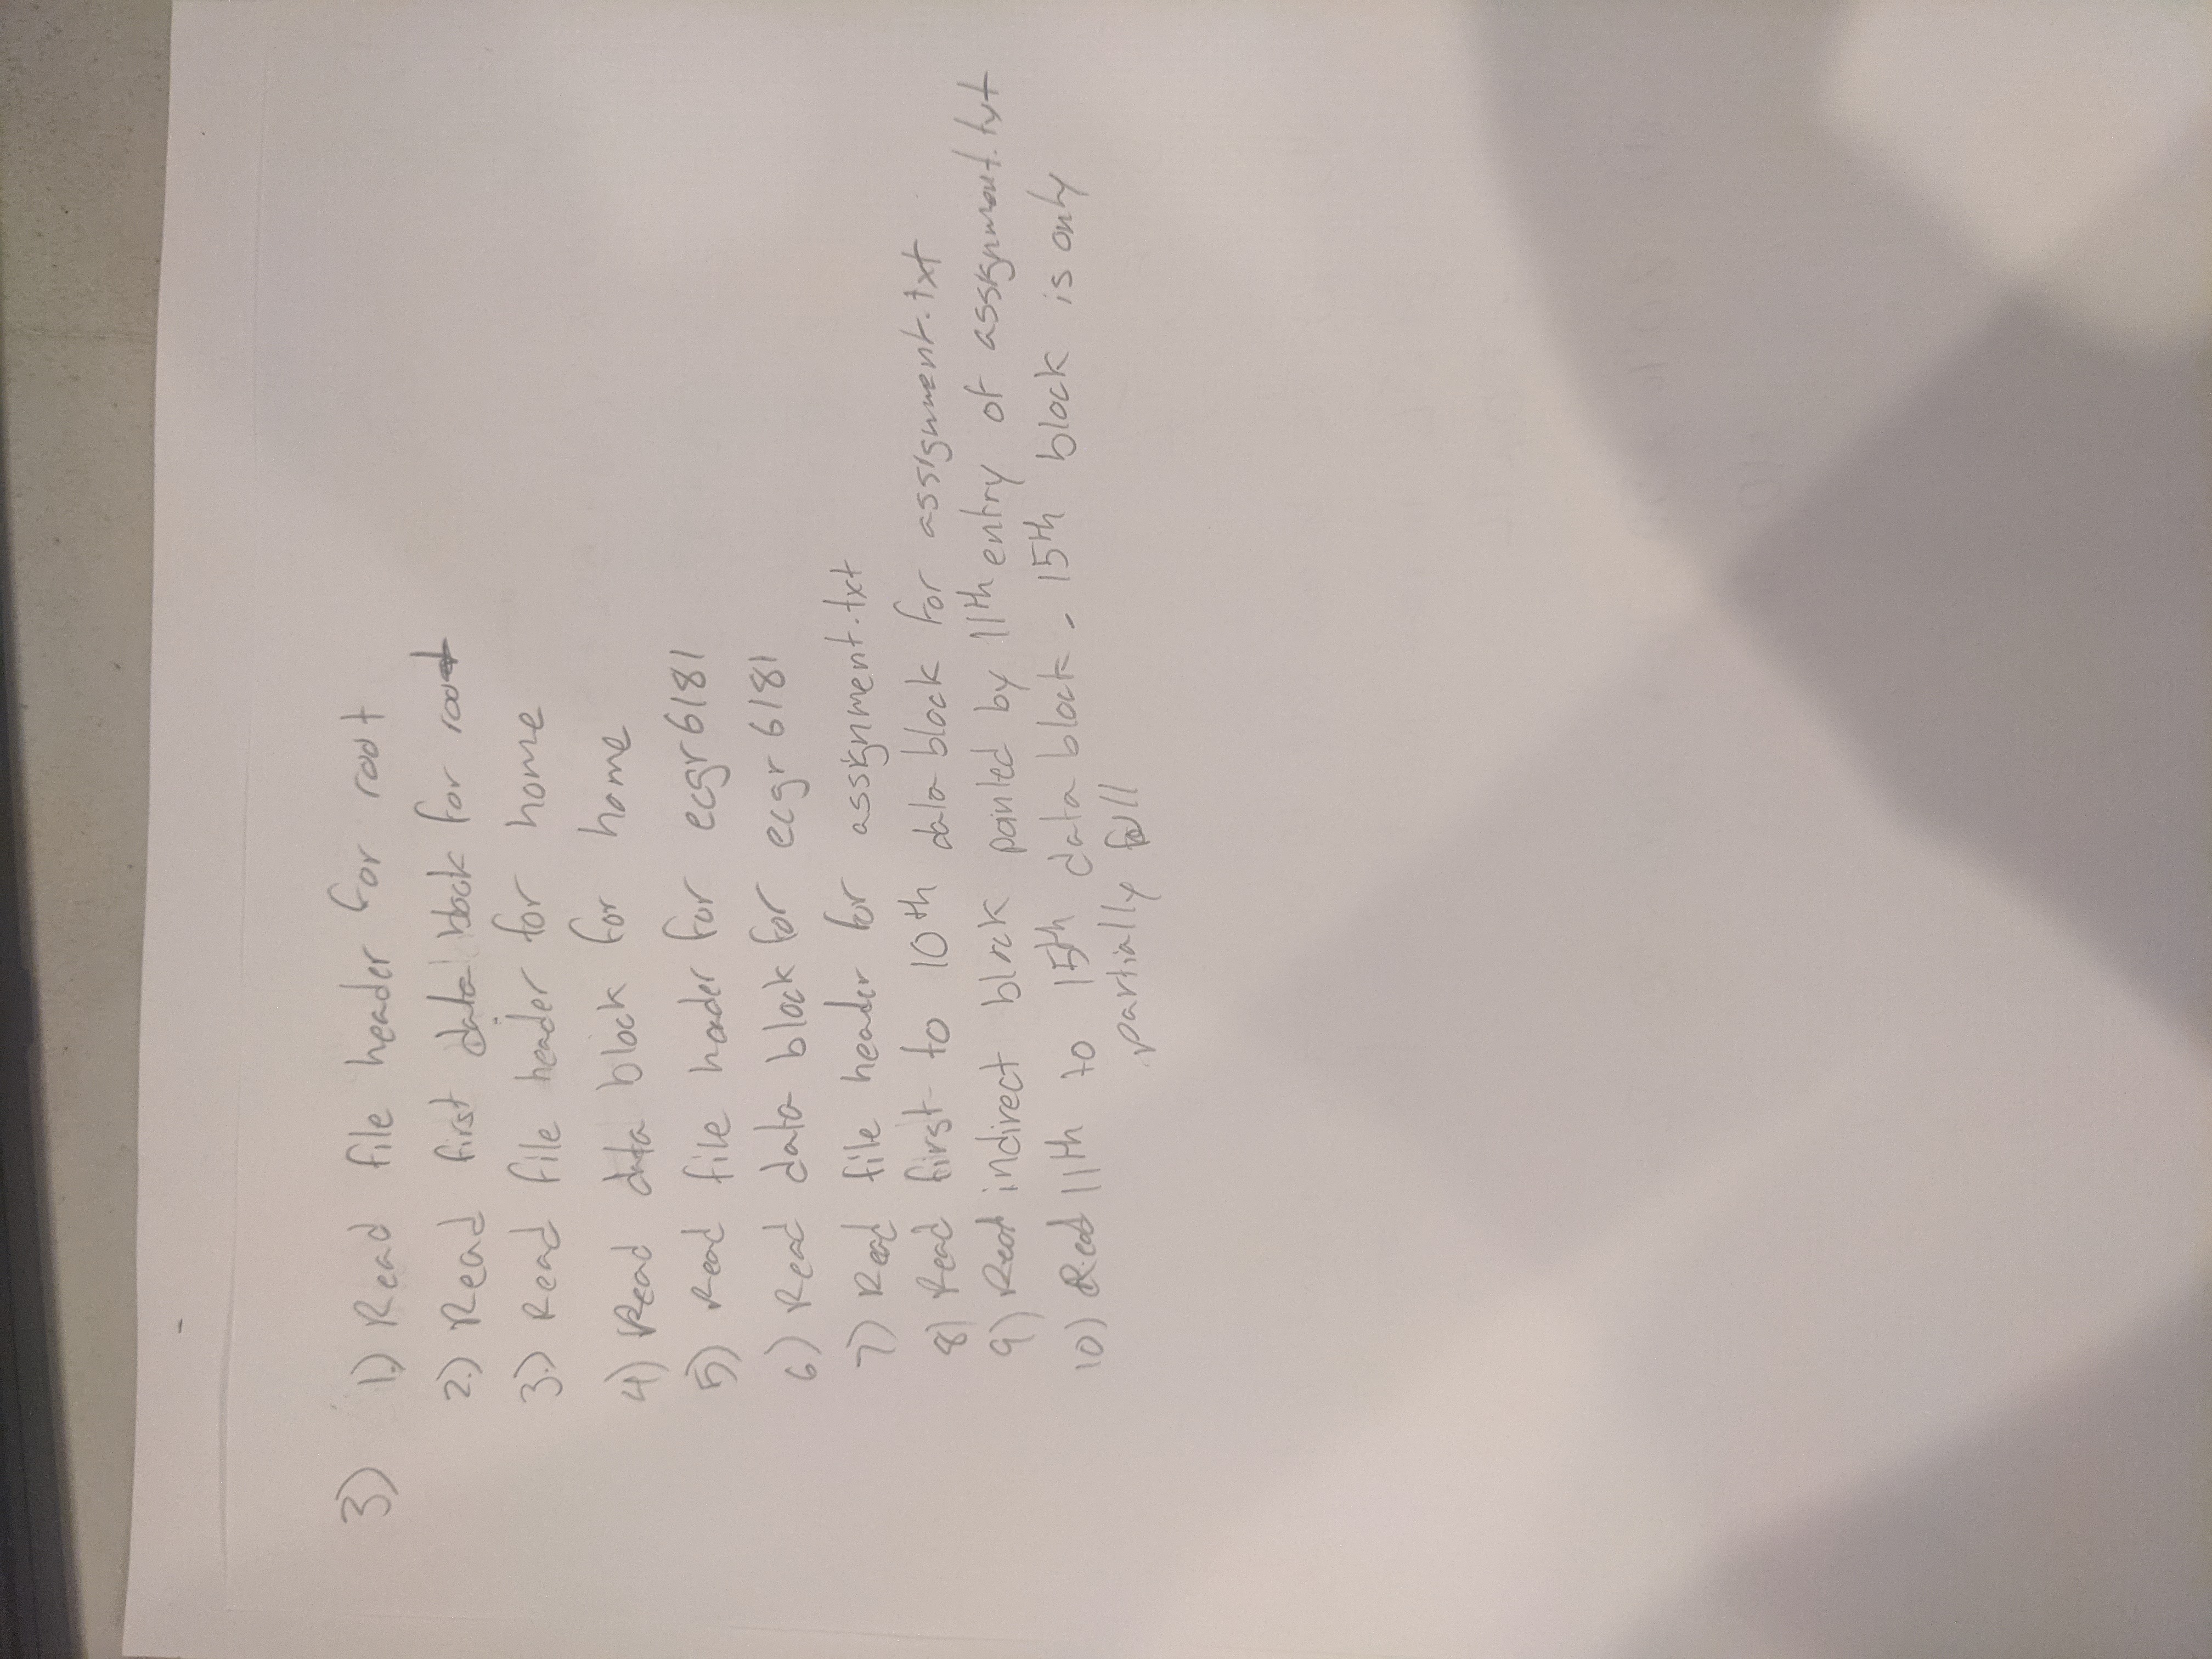 3) 1.) Read file header for root
2.) Read first data block for root
3.) Read file header for home
4) Read data block for home
5) Read file header for ecgr6181
6) Read data block for ecgr6181
7) Read file header for assignment.txt
8) Read first to 10th data block for assignment.txt
9) Read indirect block pointed by 11th entry of assignment.txt
10) Read 11th to 15th data block - 15th block is only
partially full